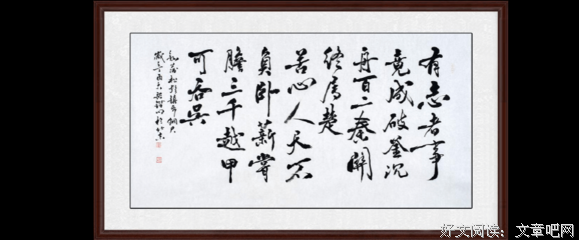 有志者事
竟成破釜沉
舟百二秦關
終屬楚
苦心人天不
負卧薪嘗
膽三千越甲
可吞吴
好文阅读：文章吧网